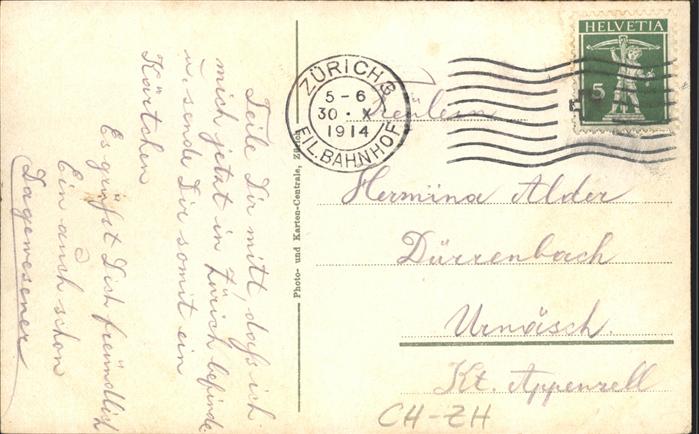 Teile Dir mitt, daß ich
mich jetzt in Zürich befinde
u. sende Dir somit ein
Kärtchen
Es grüßt Dich freundlich
Ein auch schon
Dagewesener
Photo- und Karten-Centrale, Zürich
ZÜRICH 6
5-6
30 · X
1914
FIL. BAHNHOF
HELVETIA
5
Fräulein
Hermina Alder
Dürrenbach
Urnäsch.
Kt. Appenzell
CH-ZH